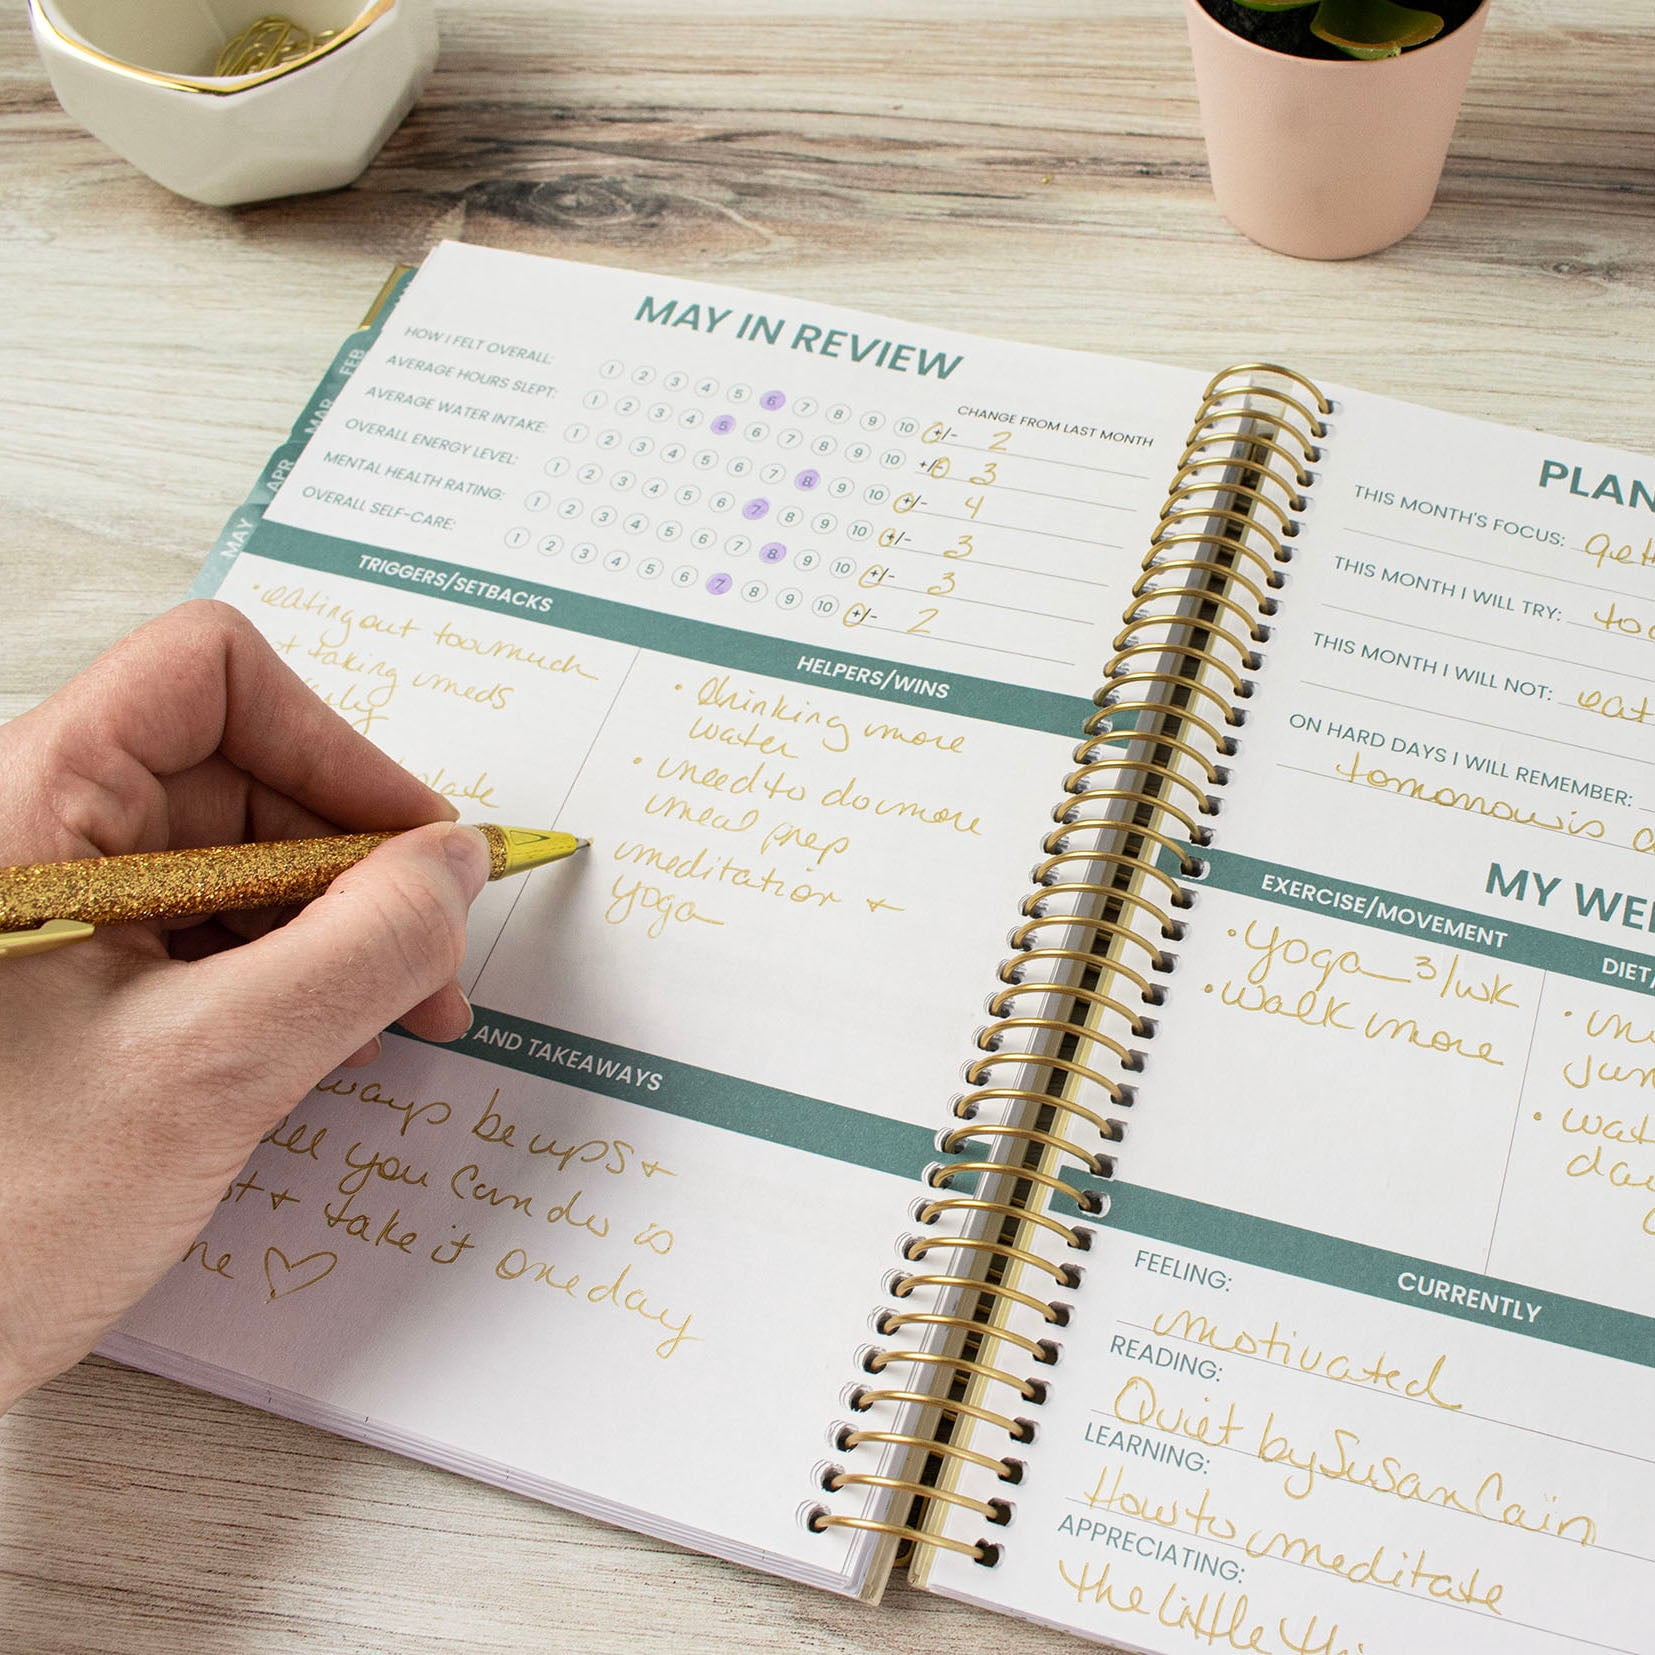 FEB
MAR
APR
MAY
MAY IN REVIEW
CHANGE FROM LAST MONTH
HOW I FELT OVERALL: 1 2 3 4 5 6 7 8 9 10 +/- 2
AVERAGE HOURS SLEPT: 1 2 3 4 5 6 7 8 9 10 +/- 3
AVERAGE WATER INTAKE: 1 2 3 4 5 6 7 8 9 10 +/- 4
OVERALL ENERGY LEVEL: 1 2 3 4 5 6 7 8 9 10 +/- 3
MENTAL HEALTH RATING: 1 2 3 4 5 6 7 8 9 10 +/- 3
OVERALL SELF-CARE: 1 2 3 4 5 6 7 8 9 10 +/- 2
TRIGGERS/SETBACKS
• eating out too much
taking meds
HELPERS/WINS
• drinking more
water
• need to do more
meal prep
meditation +
yoga
AND TAKEAWAYS
be ups +
all you can do is
+ take it one day
♡
PLAN
THIS MONTH'S FOCUS:
THIS MONTH I WILL TRY: to
THIS MONTH I WILL NOT: eat
ON HARD DAYS I WILL REMEMBER:
tomorrow is a
MY WE
EXERCISE/MOVEMENT
• yoga 3/wk
• walk more
DIET/
CURRENTLY
FEELING:
motivated
READING:
Quiet by Susan Cain
LEARNING:
How to meditate
APPRECIATING:
the little thi